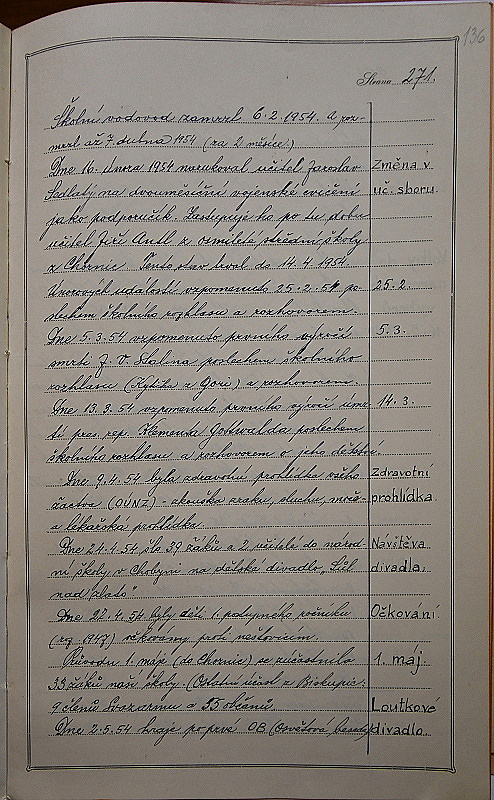 136
Strana 271.
Školní vodovod zamrzl 6.2.1954. A roz-
mrzl až 7. dubna 1954 (za 2 měsíce.)
Dne 16. února 1954 narukoval učitel Jaroslav Změna v
Sedlatý na dvouměsíční vojenské cvičení uč. sboru.
jako podporučík. Zastupuje ho po tu dobu
učitel Jiří Antl z osmileté střední školy
z Chornic. Tento stav trval do 14.4.1954.
Únorových událostí vzpomenuto 25.2.54 po- 25.2.
slechem školního rozhlasu a rozhovorem.
Dne 5.3.54 vzpomenuto prvního výročí 5.3.
smrti J. V. Stalina poslechem školního
rozhlasu (Kytika z Gori) a rozhovorem.
Dne 13.3.54 vzpomenuto prvního výročí úmr- 14.3.
tí pres. rep. Klementa Gottwalda poslechem
školního rozhlasu a rozhovorem o jeho dětství.
Dne 9.4.54 byla zdravotní prohlídka všeho Zdravotní
žactva (OÚNZ) - zkouška zraku, sluchu, moče prohlídka.
a lékařská prohlídka.
Dne 21.4.54 šlo 39 žáků a 2 učitelé do národ- Návštěva
ní školy v Chobyni na dětské divadlo „Sůl divadla.
nad zlato"
Dne 27.4.54 byly děti 1. postupného ročníku Očkování.
(roz. 1947) očkovány proti neštovicím.
Průvodu 1. máje (do Chornic) se zúčastnilo 1. máj.
33 žáků naší školy. (Ostatní účast z Biskupic:
9 členů Svazarmu a 55 občanů. Loutkové
Dne 2.5.54 hraje po prvé OB (Osvětová beseda) divadlo.